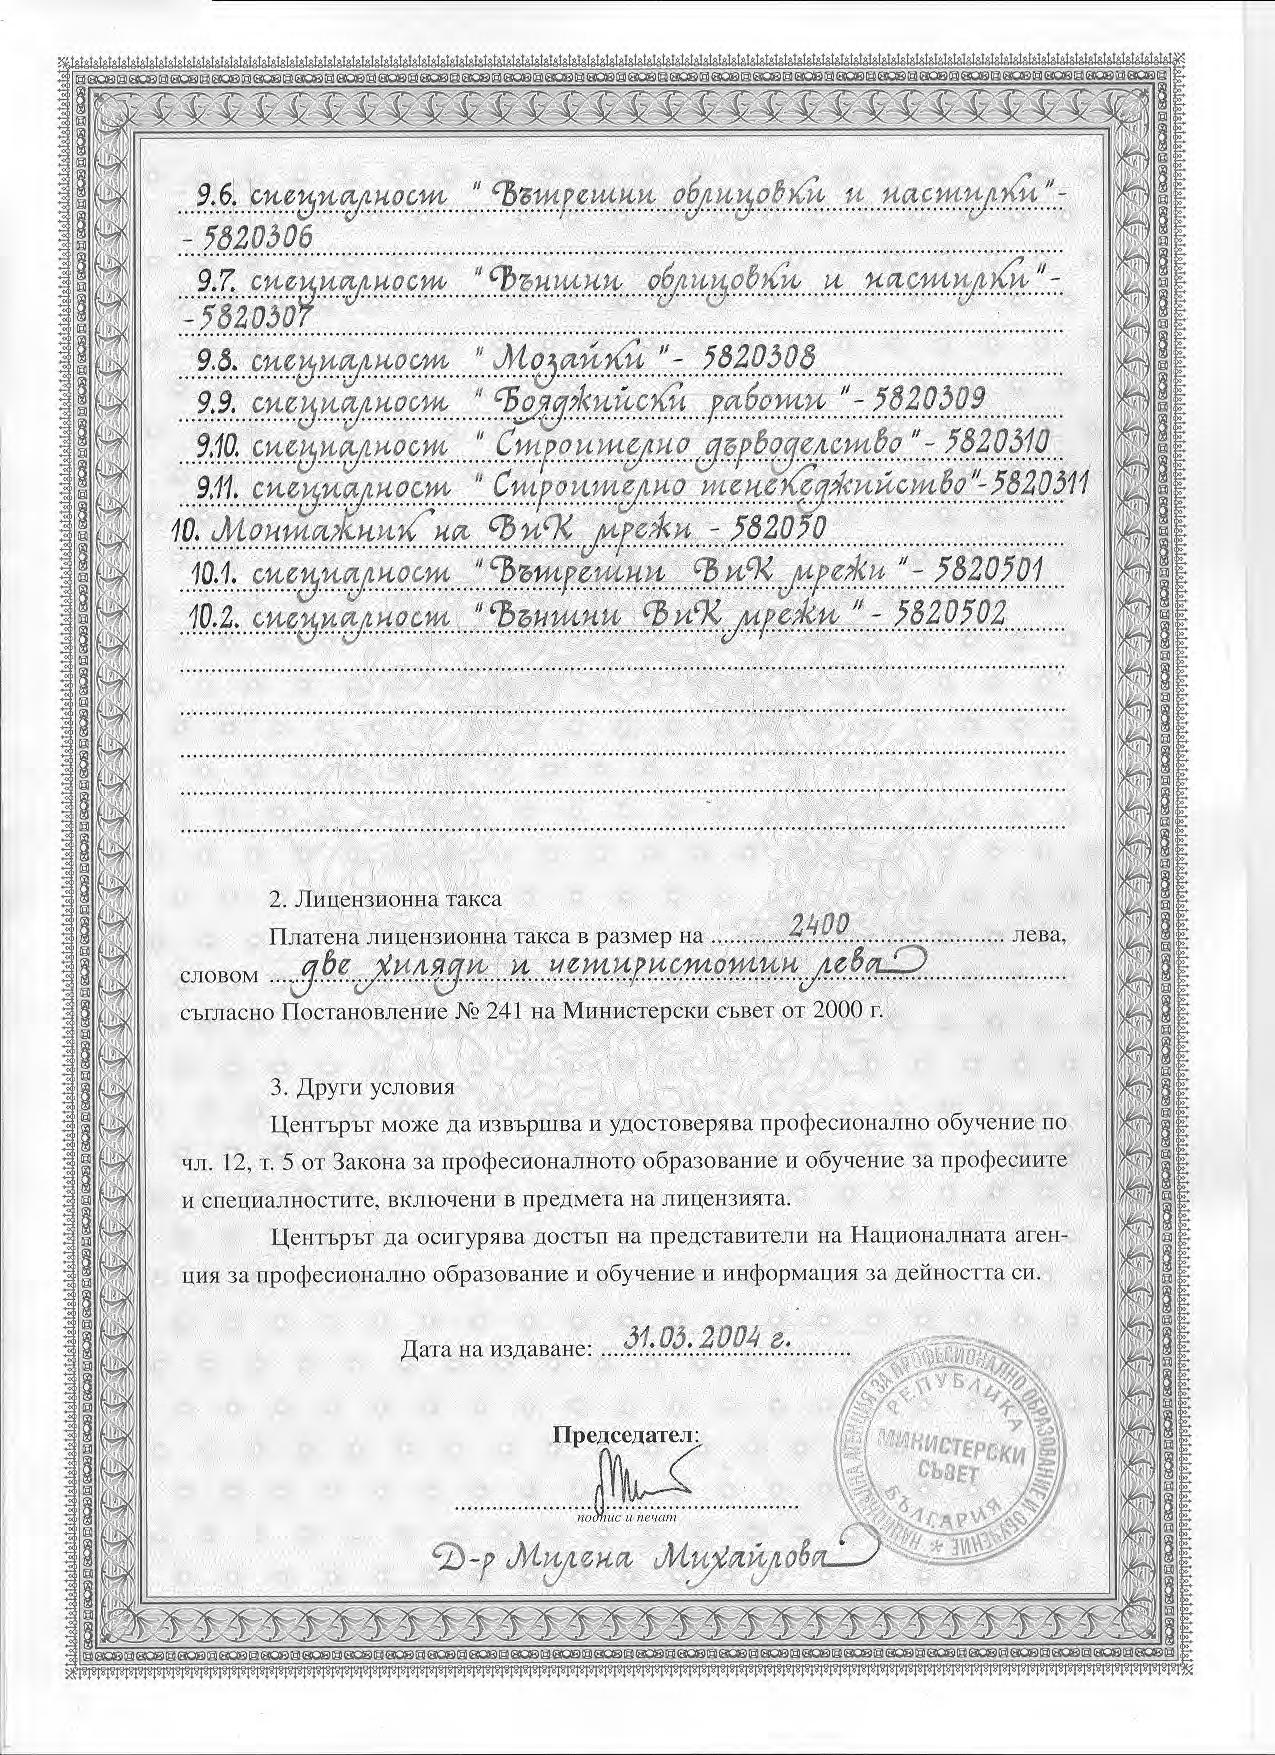 9.6. специалност "Вътрешни облицовки и настилки"-
- 5820306
9.7. специалност "Външни облицовки и настилки"-
-5820307
9.8. специалност "Мозайки"- 5820308
9.9. специалност "Бояджийски работи"- 5820309
9.10. специалност "Строително дърводелство"- 5820310
9.11. специалност "Строително тенекеджийство"-5820311
10. Монтажник на ВиК мрежи - 582050
10.1. специалност "Вътрешни ВиК мрежи"- 5820501
10.2. специалност "Външни ВиК мрежи"- 5820502
2. Лицензионна такса
Платена лицензионна такса в размер на 2400 лева,
словом две хиляди и четиристотин лева
съгласно Постановление № 241 на Министерски съвет от 2000 г.
3. Други условия
Центърът може да извършва и удостоверява професионално обучение по
чл. 12, т. 5 от Закона за професионалното образование и обучение за професиите
и специалностите, включени в предмета на лицензията.
Центърът да осигурява достъп на представители на Националната аген-
ция за професионално образование и обучение и информация за дейността си.
Дата на издаване: 31.03.2004 г.
Председател:
подпис и печат
Д-р Милена Михайлова
НАЦИОНАЛНА АГЕНЦИЯ ЗА ПРОФЕСИОНАЛНО ОБРАЗОВАНИЕ И ОБУЧЕНИЕ *
РЕПУБЛИКА
МИНИСТЕРСКИ
СЪВЕТ
БЪЛГАРИЯ